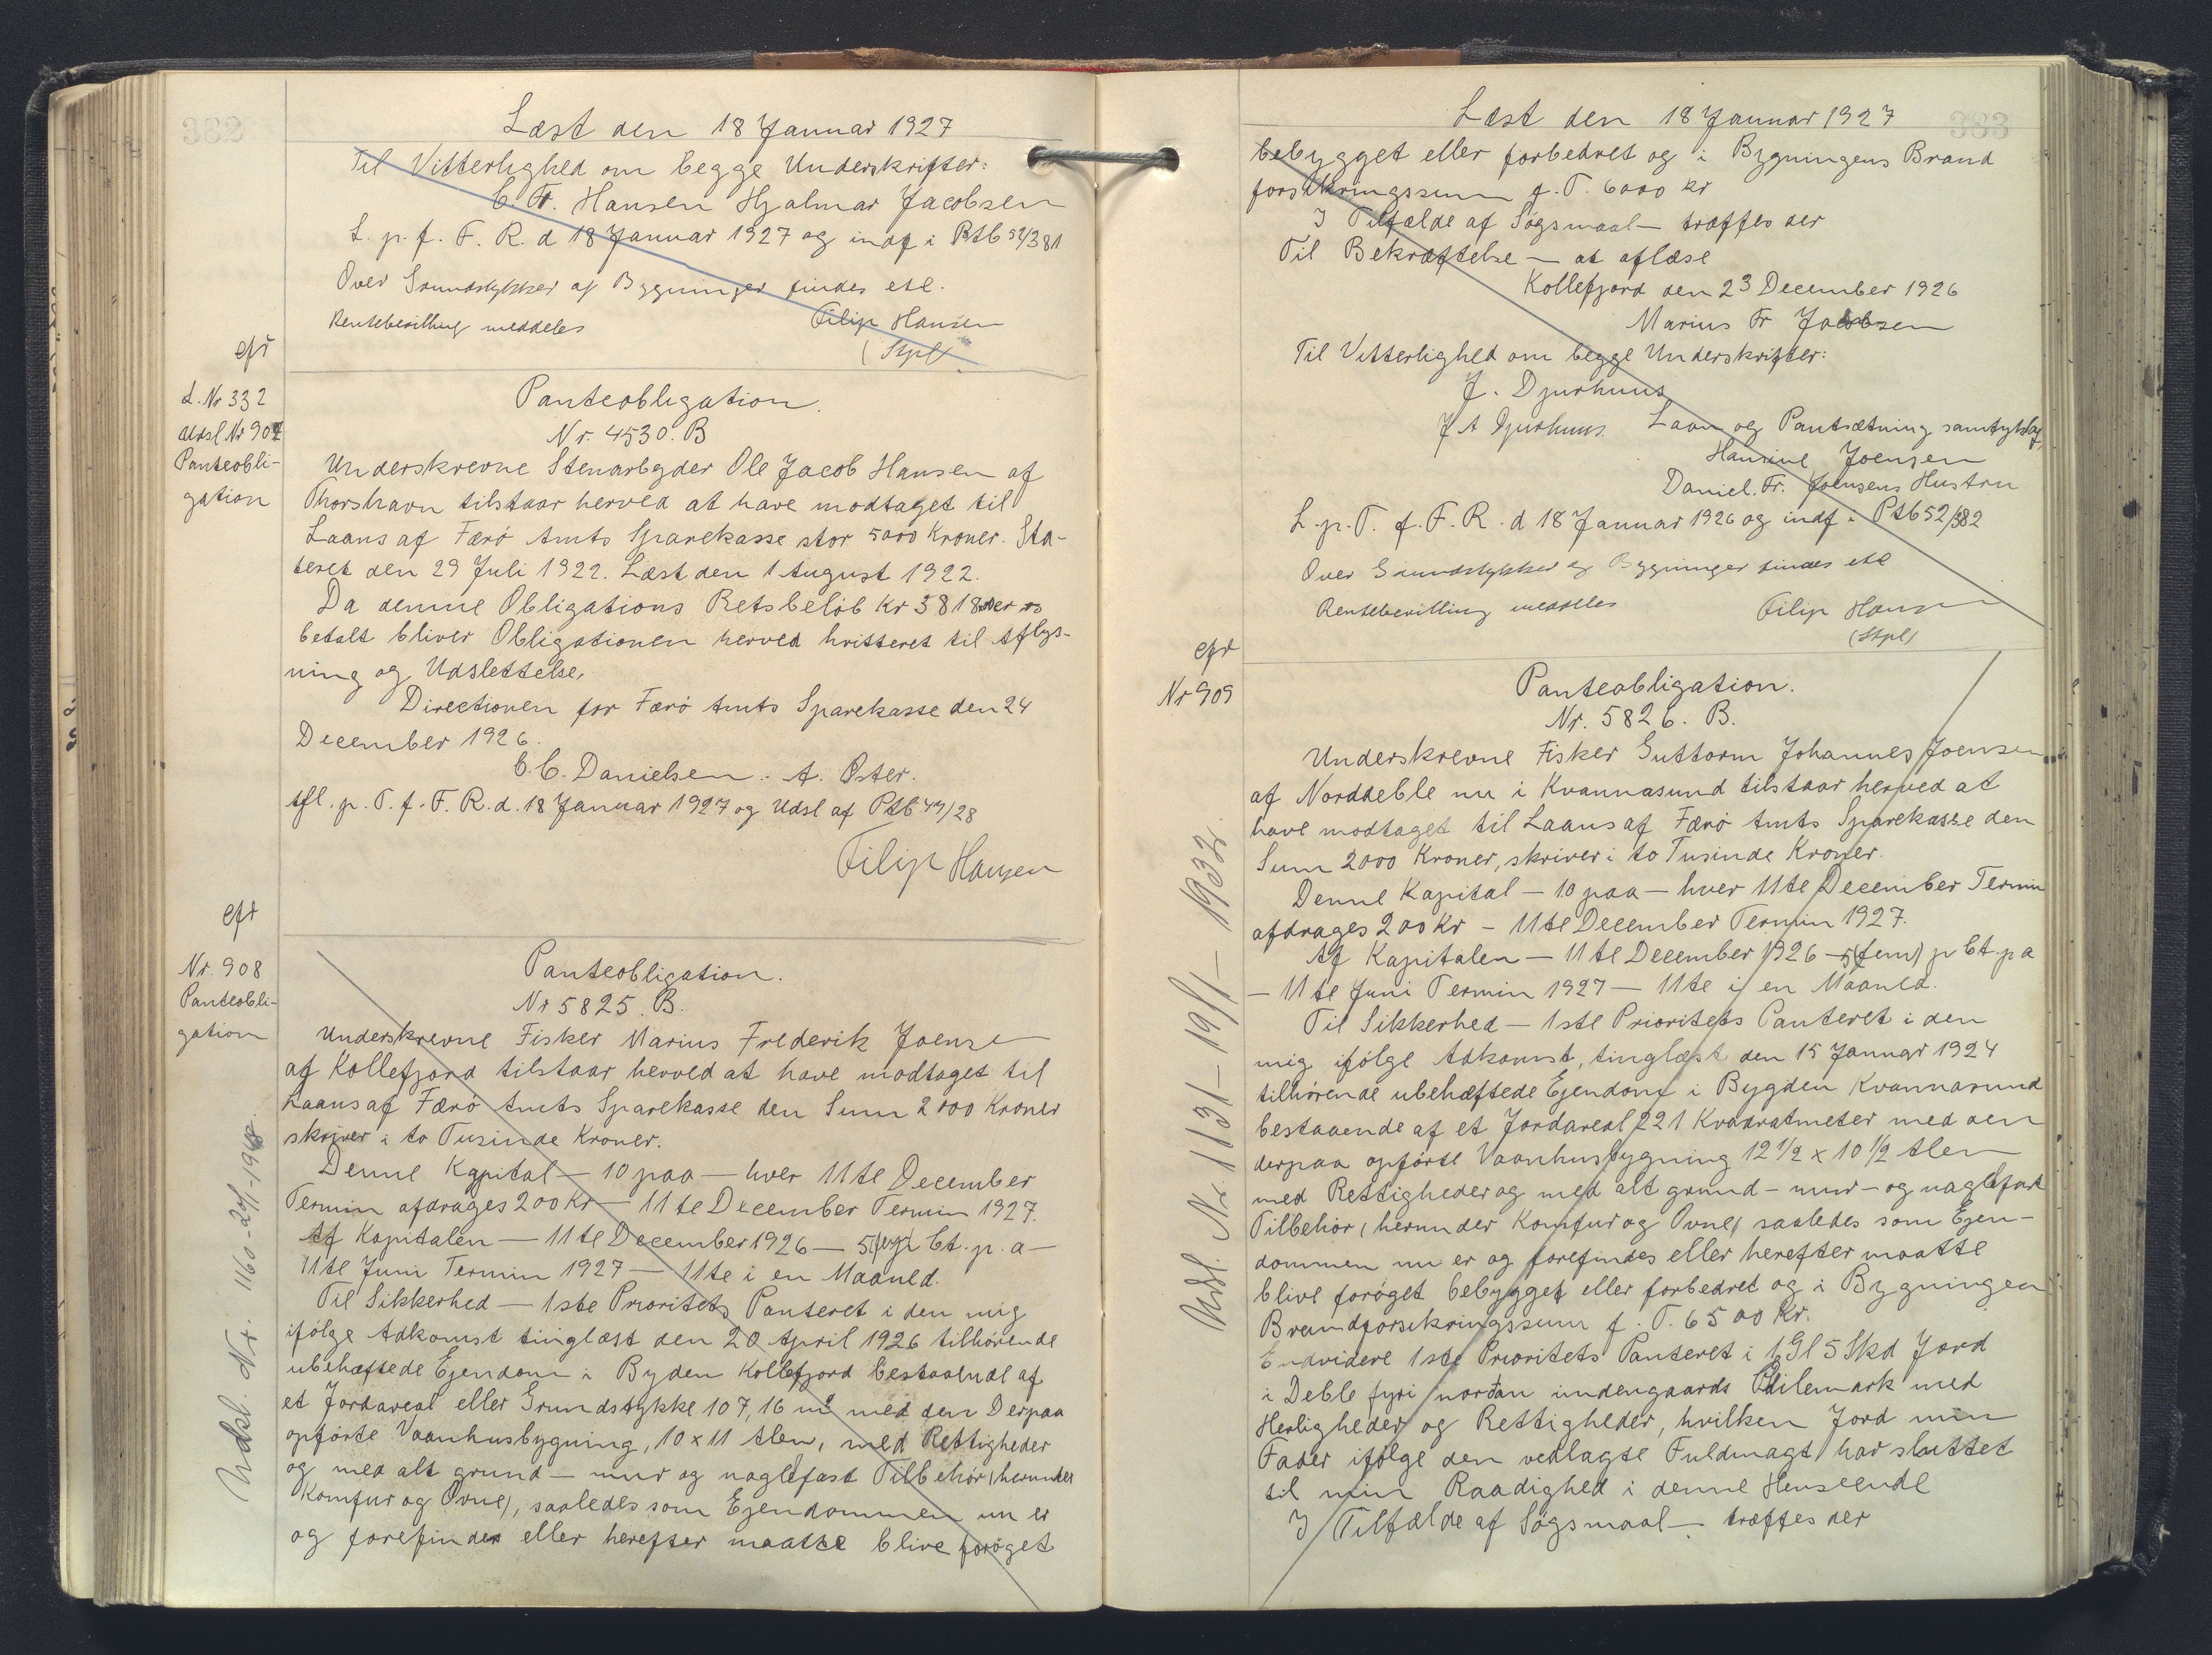 382
Læst den 18 Januar 1927
Til Vitterlighed om begge Underskrifter:
C. Fr. Hansen Hjalmar Jacobsen
L. p. f. F. R. d 18 Januar 1927 og indf i Ptb 52/381
Over Grundstykker og Bygninger findes etc.
Rentebevilling meddeles Filip Hansen
(Stpl)
efr
L. Nr 332
Udsl Nr 907
Panteobli-
gation
Panteobligation.
Nr. 4530. B
Underskrevne Stenarbejder Ole Jacob Hansen af
Thorshavn tilstaar herved at have modtaget til
Laans af Færö Amts Sparekasse stor 5000 Kroner. Da-
teret den 29 Juli 1922. Læst den 1 August 1922.
Da denne Obligations Retsbelöb Kr 3818 er
betalt bliver Obligationen herved kvitteret til Aflys-
ning og Udslettelse.
Directionen for Færö Amts Sparekasse den 24
December 1926.
C. C. Danielsen. A. Öster.
Afl. p. T. f. F. R. d. 18 Januar 1927 og Udsl af Ptb 47/28
Filip Hansen
efr
Nr. 908
Panteobli-
gation
Udsl. Nr. 1160 - 1948.
Panteobligation.
Nr 5825. B.
Underskrevne Fisker Marius Frederik Joensen
af Kollefjord tilstaar herved at have modtaget til
Laans af Færö Amts Sparekasse den Sum 2000 Kroner
skriver i to Tusinde Kroner.
Denne Kapital — 10 paa — hver 11te December
Termin afdrages 200 Kr — 11te December Termin 1927.
Af Kapitalen — 11te December 1926 — 5 (fem) Ct. p. a —
11te Juni Termin 1927 — 11te i en Maaned.
Til Sikkerhed — 1ste Prioritets Panteret i den mig
ifölge Adkomst tinglæst den 20 April 1926 tilhörende
ubehæftede Ejendom i Byden Kollefjord bestaaende af
et Jordareal eller Grundstykke 107,16 m² med den Derpaa
opförte Vaanhusbygning, 10 x 11 Alen, med Rettigheder
og med alt grund — mur og naglefast Tilbehör (herunder
Komfur og Ovne), saaledes som Ejendommen nu er
og forefindes eller herefter maatte blive foröget
383
Læst den 18 Januar 1927
bebygget eller forbedret og i Bygningens Brand
forsikringssum f. T. 6000 Kr
I Tilfælde af Sögsmaal — træffes der
Til Bekræftelse — at aflæse
Kollefjord den 23 December 1926
Marius Fr Jacobsen
Til Vitterlighed om begge Underskrifter:
J. Djurhuus
J A Djurhuus. Laan og Pantsætning samtykkes
Hansine Joensen
Daniel. Fr. Joensens Hustru
L. p. T. f. F. R. d 18 Januar 1926 og indf i Ptb 52/382
Over Grundstykker og Bygninger findes etc
Rentebevilling meddeles Filip Hansen
(Stpl)
efr
Nr 909
Udsl. Nr. 1131 - 19/1 - 1932.
Panteobligation.
Nr. 5826. B.
Underskrevne Fisker Guttorm Johannes Joensen
af Norddeble nu i Kvannasund tilstaar herved at
have modtaget til Laans af Færö Amts Sparekasse den
Sum 2000 Kroner, skriver i to Tusinde Kroner.
Denne Kapital — 10 paa — hver 11te December Termin
afdrages 200 Kr — 11te December Termin 1927.
Af Kapitalen — 11te December 1926 — 5 (fem) p Ct. p a
— 11te Juni Termin 1927 — 11te i en Maaned.
Til Sikkerhed — 1ste Prioritets Panteret i den
mig ifölge Adkomst, tinglæst den 15 Januar 1924
tilhörende ubehæftede Ejendom i Bygden Kvannasund
bestaaende af et Jordareal 221 Kvadratmeter med den
derpaa opförte Vaanhusbygning 12 1/2 x 10 1/2 Alen
med Rettigheder og med alt grund — mur — og naglefast
Tilbehör (herunder Komfur og Ovne) saaledes som Ejen-
dommen nu er og forefindes eller herefter maatte
blive foröget bebygget eller forbedret og i Bygningen
Brandforsikringssum f. T. 6500 Kr.
Endvidere 1ste Prioritets Panteret i 1 Gl 5 Skd Jord
i Deble fyri nordan indengaards Odilemark med
Herligheder og Rettigheder, hvilken Jord min
Fader ifölge den vedlagte Fuldmagt har sluttet
til min Raadighed i denne Henseende
I Tilfælde af Sögsmaal — træffes der